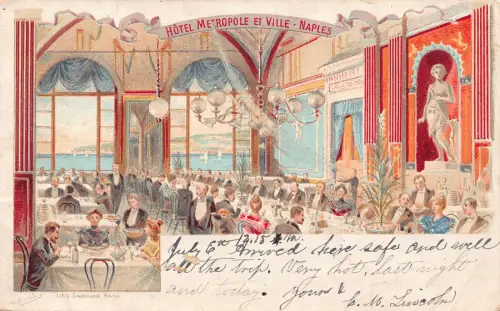 HÔTEL METROPOLE ET VILLE - NAPLES
July 6th Arrived here safe and well
all the trip. Very hot, last night
and today. Yours &
C. M. Lincoln